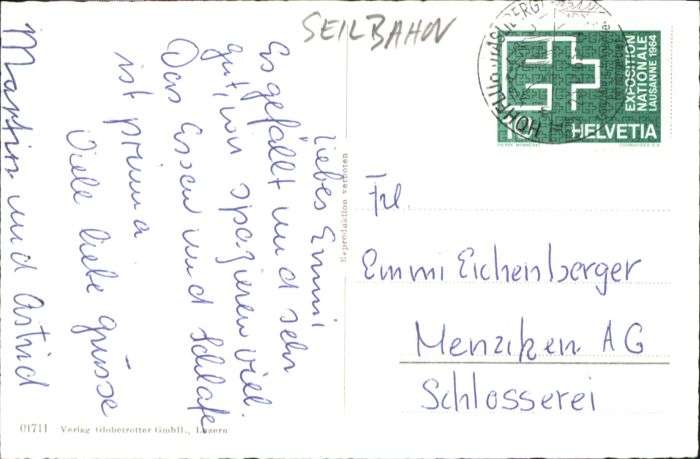 SEILBAHN
Liebes Emmi!
Es gefällt und sehr
gut, wir spazieren viel.
Das Essen und Schlafe
ist prima
Viele liebe Grüsse
Martin und Astrid
Reproduktion verboten
01711 Verlag Globetrotter GmbH., Luzern
HOHFLUH
EXPOSITION
NATIONALE
LAUSANNE 1964
10 HELVETIA
Frl.
Emmi Eichenberger
Menziken AG
Schlosserei